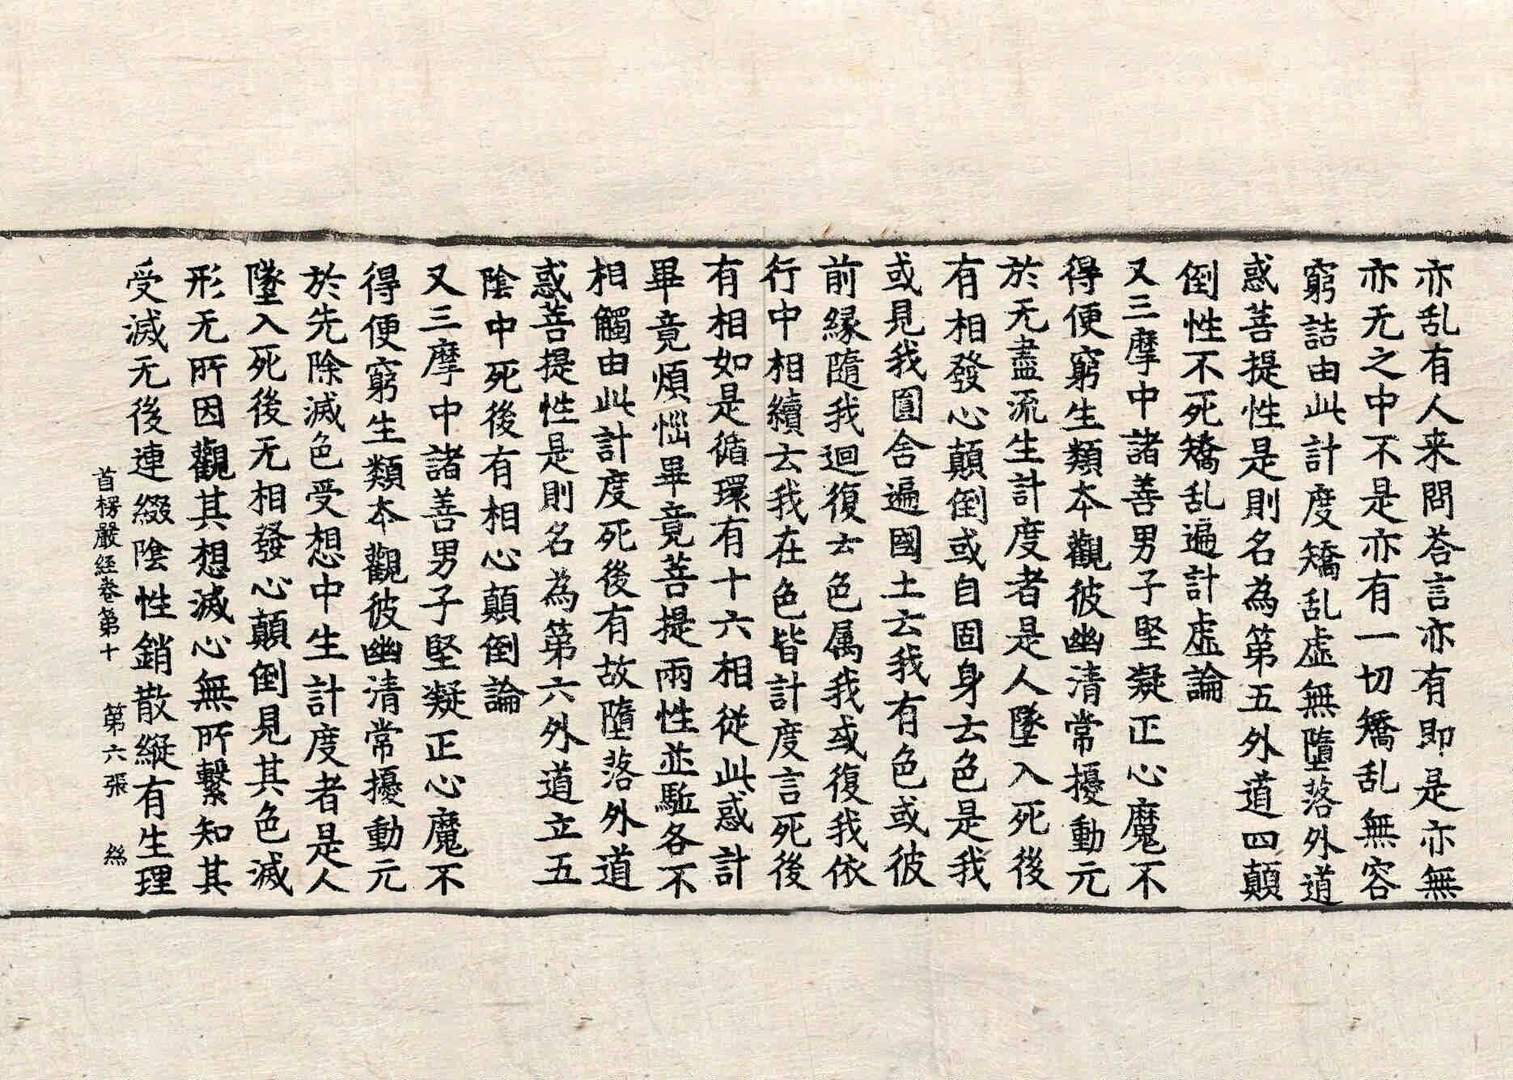 亦乱有人来問荅言亦有即是亦無
亦无之中不是亦有一切矯乱無容
窮詰由此計度矯乱虛無墮落外道
惑菩提性是則名為第五外道四顛
倒性不死矯乱遍計虛論
又三摩中諸善男子堅凝正心魔不
得便窮生類夲觀彼幽清常擾動元
於无盡流生計度者是人墜入死後
有相發心顛倒或自固身云色是我
或見我圓含遍國土云我有色或彼
前緣隨我迴復云色属我或復我依
行中相續云我在色皆計度言死後
有相如是循環有十六相從此惑計
畢竟煩惱畢竟菩提兩性並駈各不
相觸由此計度死後有故墮落外道
惑菩提性是則名為第六外道立五
陰中死後有相心顛倒論
又三摩中諸善男子堅凝正心魔不
得便窮生類夲觀彼幽清常擾動元
於先除滅色受想中生計度者是人
墜入死後无相發心顛倒見其色滅
形无所因觀其想滅心無所繫知其
受滅无後連綴陰性銷散縱有生理
首楞嚴経卷第十　第六張　絲